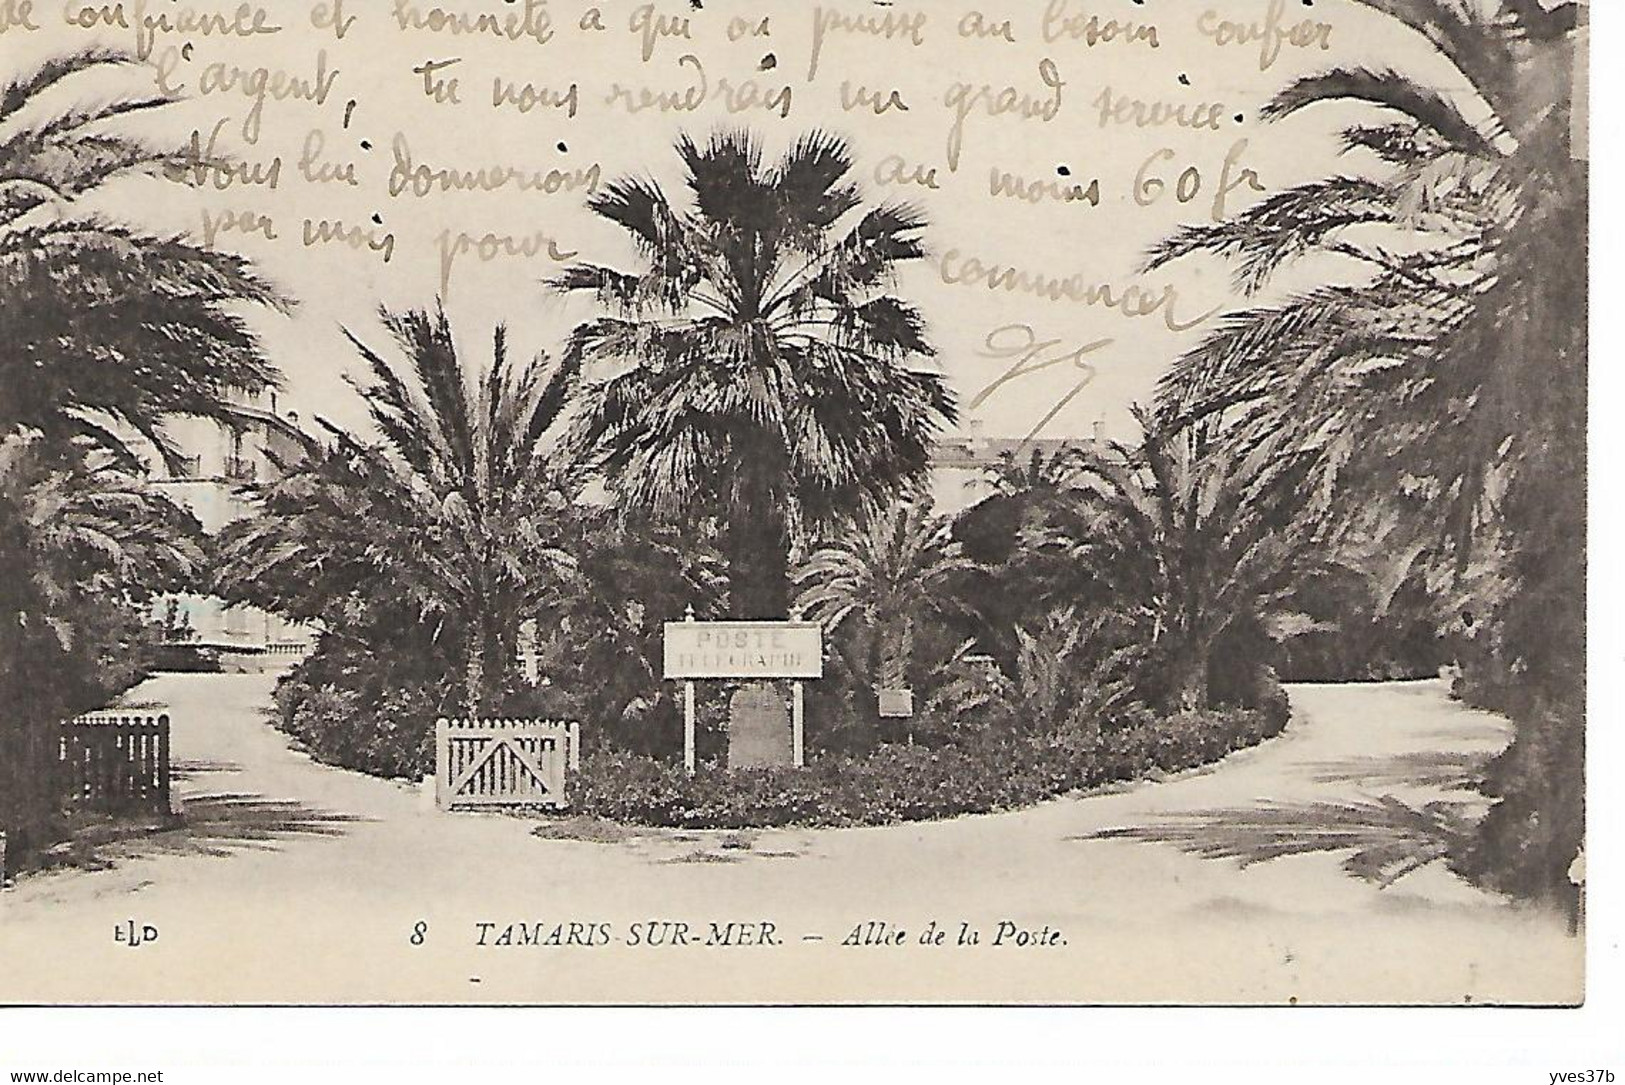 de confiance et honnête à qui on puisse au besoin confier
l'argent, tu nous rendrais un grand service.
Nous lui donnerions au moins 60 fr
par mois pour commencer
POSTE
TELEGRAPHE
ELD 8 TAMARIS-SUR-MER. — Allée de la Poste.
delcampe.net yves37b